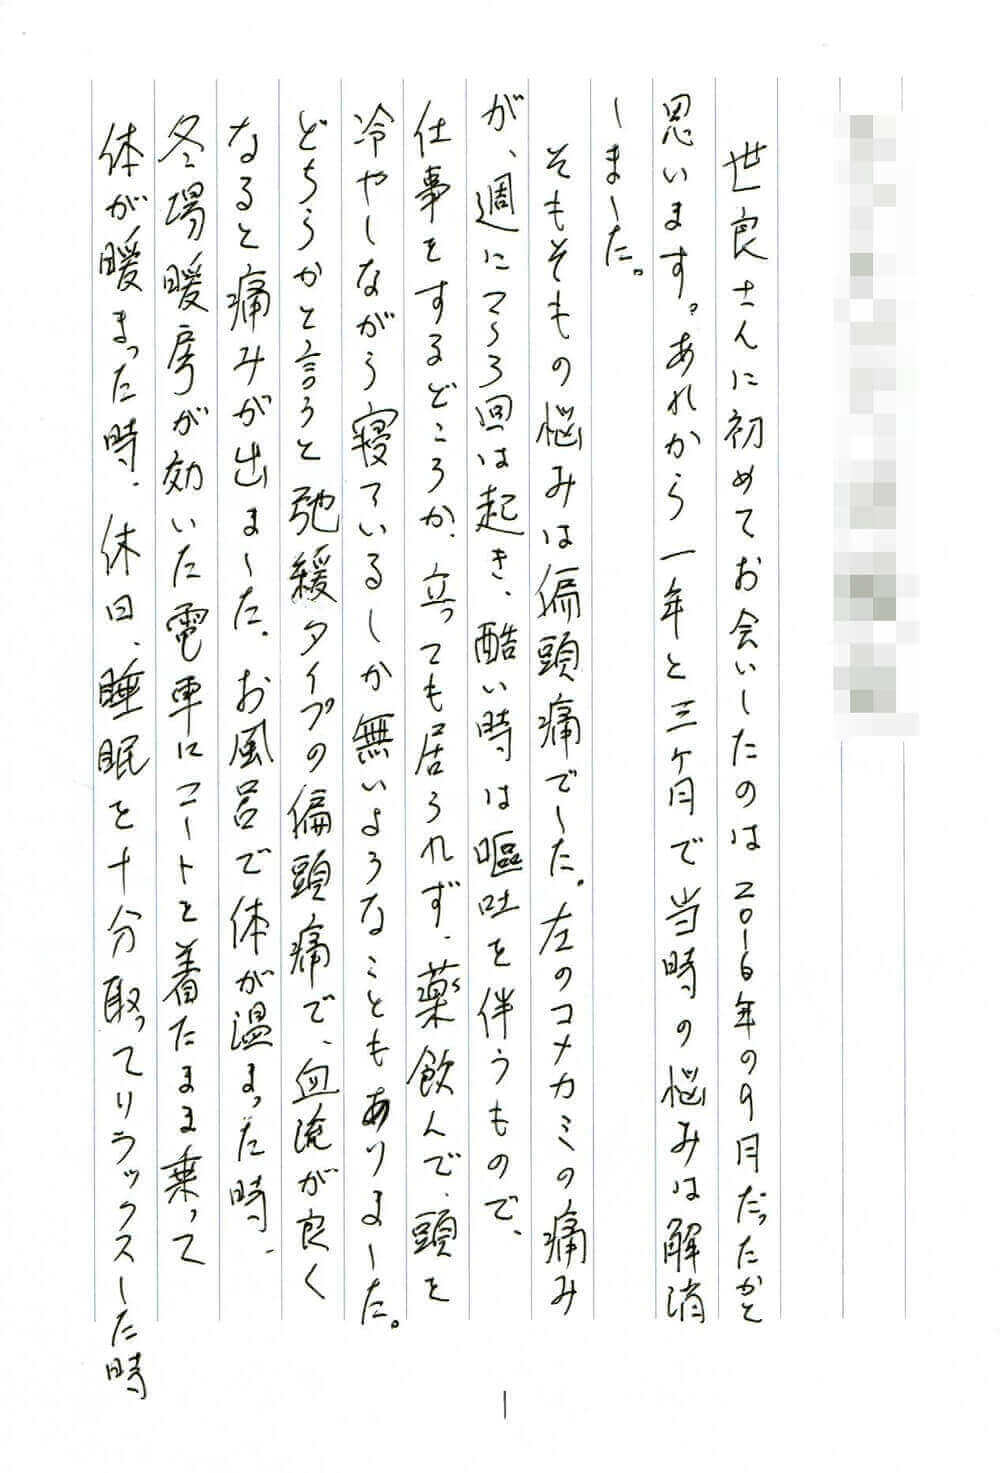 世良さんに初めてお会いしたのは2016年の9月だったかと
思います。あれから一年と三ヶ月で当時の悩みは解消
しました。
そもそもの悩みは偏頭痛でした。左のコメカミの痛み
が、週に2〜3回は起き、酷い時は嘔吐を伴うもので、
仕事をするどころか、立っても居られず、薬飲んで、頭を
冷やしながら寝ているしか無いようなこともありました。
どちらかと言うと弛緩タイプの偏頭痛で、血流が良く
なると痛みが出ました。お風呂で体が温まった時、
冬場暖房が効いた電車にコートを着たまま乗って
体が暖まった時、休日、睡眠を十分取ってリラックスした時
1